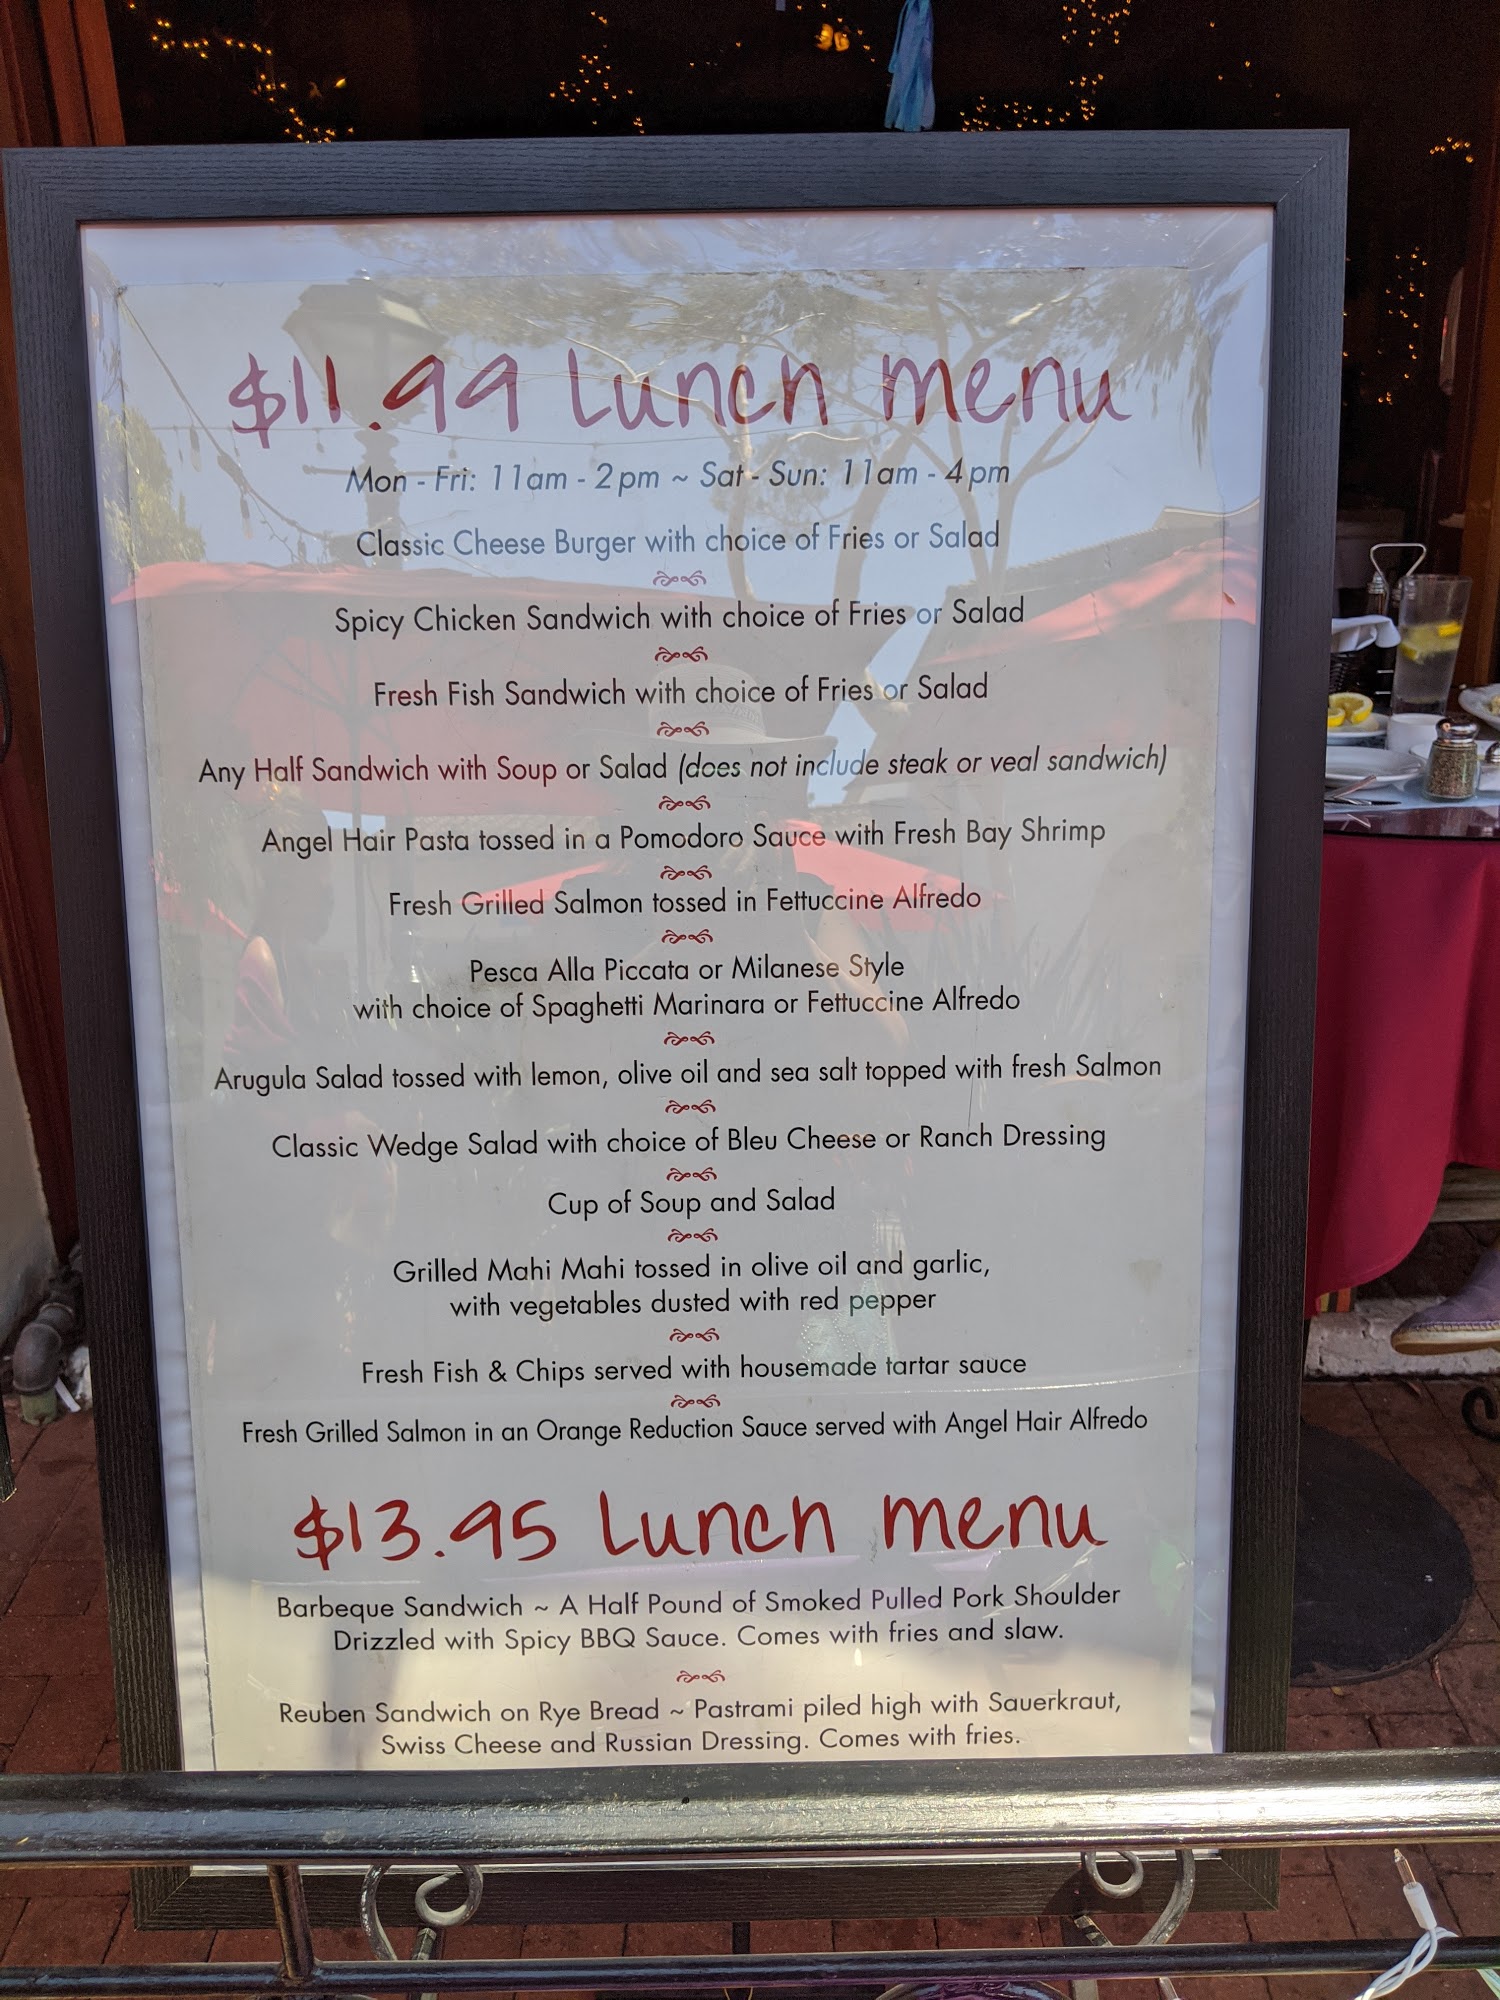 $11.99 Lunch menu
Mon - Fri: 11am - 2pm ~ Sat - Sun: 11am - 4pm
Classic Cheese Burger with choice of Fries or Salad
Spicy Chicken Sandwich with choice of Fries or Salad
Fresh Fish Sandwich with choice of Fries or Salad
Any Half Sandwich with Soup or Salad (does not include steak or veal sandwich)
Angel Hair Pasta tossed in a Pomodoro Sauce with Fresh Bay Shrimp
Fresh Grilled Salmon tossed in Fettuccine Alfredo
Pesca Alla Piccata or Milanese Style
with choice of Spaghetti Marinara or Fettuccine Alfredo
Arugula Salad tossed with lemon, olive oil and sea salt topped with fresh Salmon
Classic Wedge Salad with choice of Bleu Cheese or Ranch Dressing
Cup of Soup and Salad
Grilled Mahi Mahi tossed in olive oil and garlic,
with vegetables dusted with red pepper
Fresh Fish & Chips served with housemade tartar sauce
Fresh Grilled Salmon in an Orange Reduction Sauce served with Angel Hair Alfredo
$13.95 Lunch menu
Barbeque Sandwich ~ A Half Pound of Smoked Pulled Pork Shoulder
Drizzled with Spicy BBQ Sauce. Comes with fries and slaw.
Reuben Sandwich on Rye Bread ~ Pastrami piled high with Sauerkraut,
Swiss Cheese and Russian Dressing. Comes with fries.